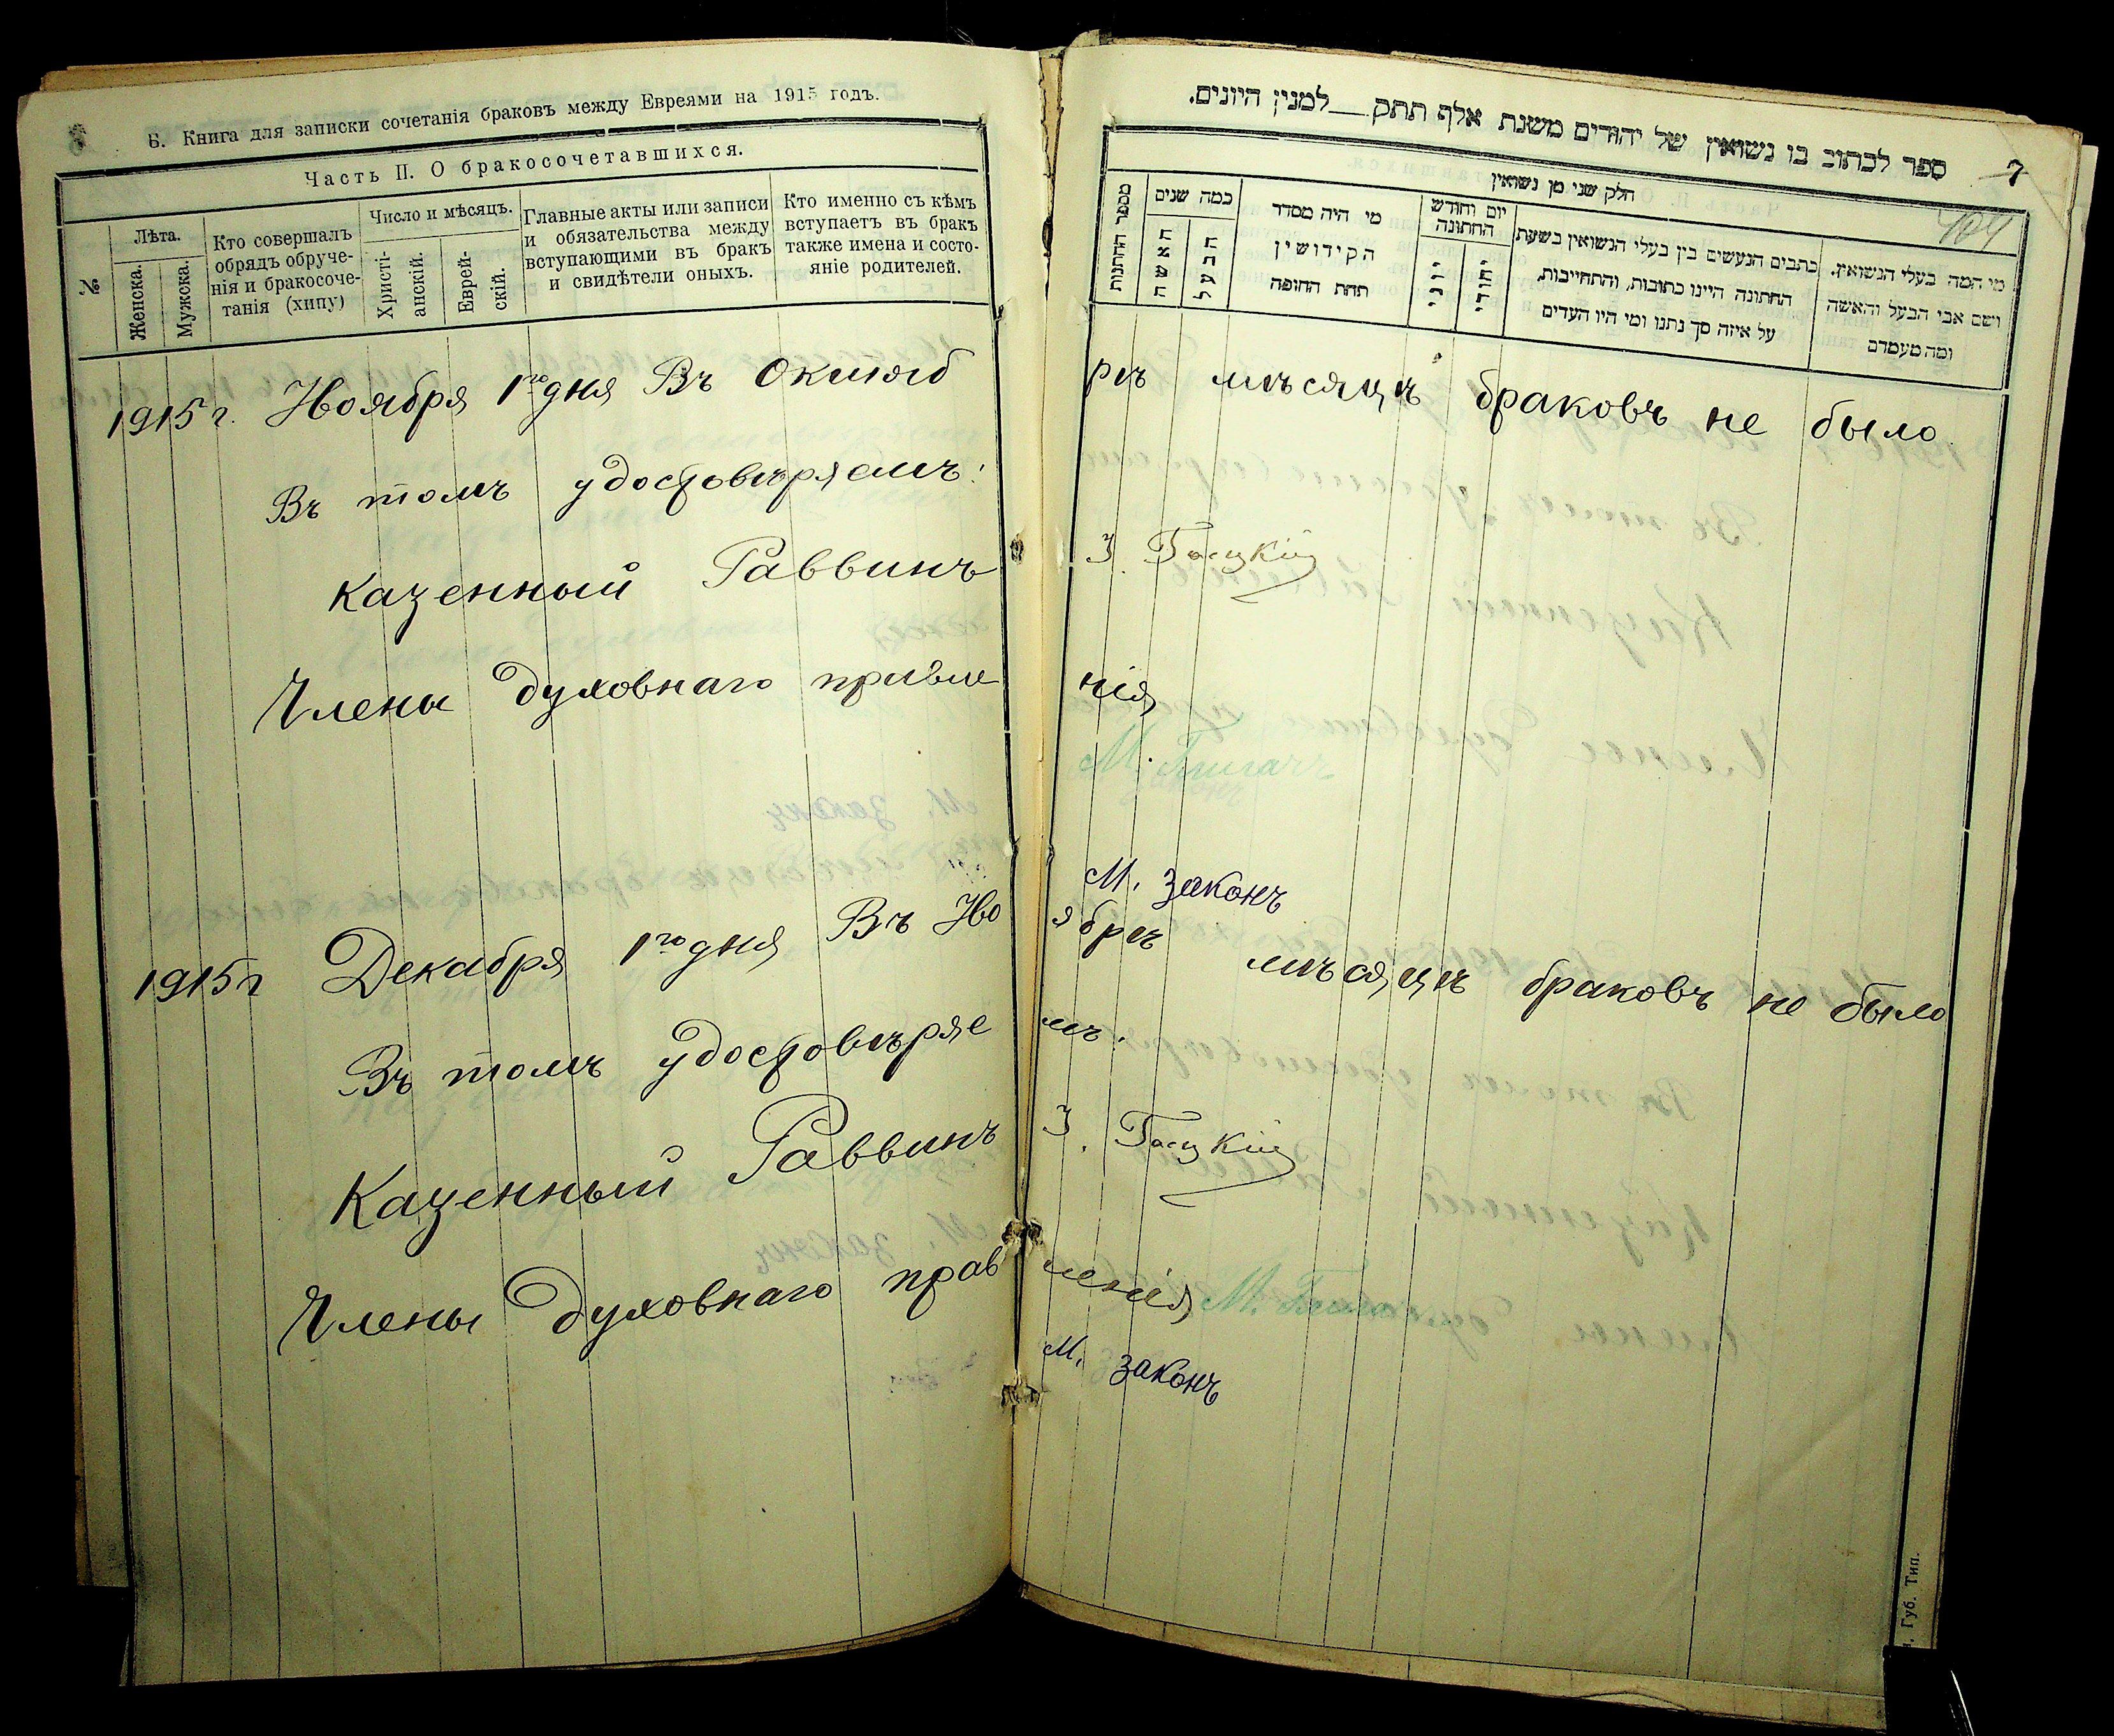 Б. Книга для записки сочетанія браковъ между Евреями на 1915 годъ.
Часть II. О бракосочетавшихся.
№
Лѣта.
Женска.
Мужска.
Кто совершалъ
обрядъ обруче-
нія и бракосоче-
танія (хипу)
Число и мѣсяцъ.
Христі-
анскій.
Еврей-
скій.
Главные акты или записи
и обязательства между
вступающими въ бракъ
и свидѣтели оныхъ.
Кто именно съ кѣмъ
вступаетъ въ бракъ
также имена и состо-
яніе родителей.
ספר לכתוב בו נשואין של יהודים משנת אלף תתק__למנין היונים.
7
404
חלק שני מן נשואין
מספר החתנות
כמה שנים
האשה
הבעל
מי היה מסדר
הקידושין
תחת החופה
יום וחודש
החתונה
יוני
יהודי
כתבים הנעשים בין בעלי הנשואין בשעת
החתונה היינו כתובות, והתחייבות,
על איזה סך נתנו ומי היו העדים
מי המה בעלי הנשואין.
ושם אבי הבעל והאשה
ומה מעמדם
1915 г. Ноября 1го дня Въ Октябрѣ мѣсяцѣ браковъ не было.
Въ томъ удостовѣряемъ:
Казенный Раввинъ
Члены духовнаго правленія
М.
М. Законъ
1915 г Декабря 1го дня Въ Ноябрѣ мѣсяцѣ браковъ не было
Въ томъ удостовѣряемъ:
Казенный Раввинъ
Члены духовнаго правленія М.
М. Законъ
Губ. Тип.